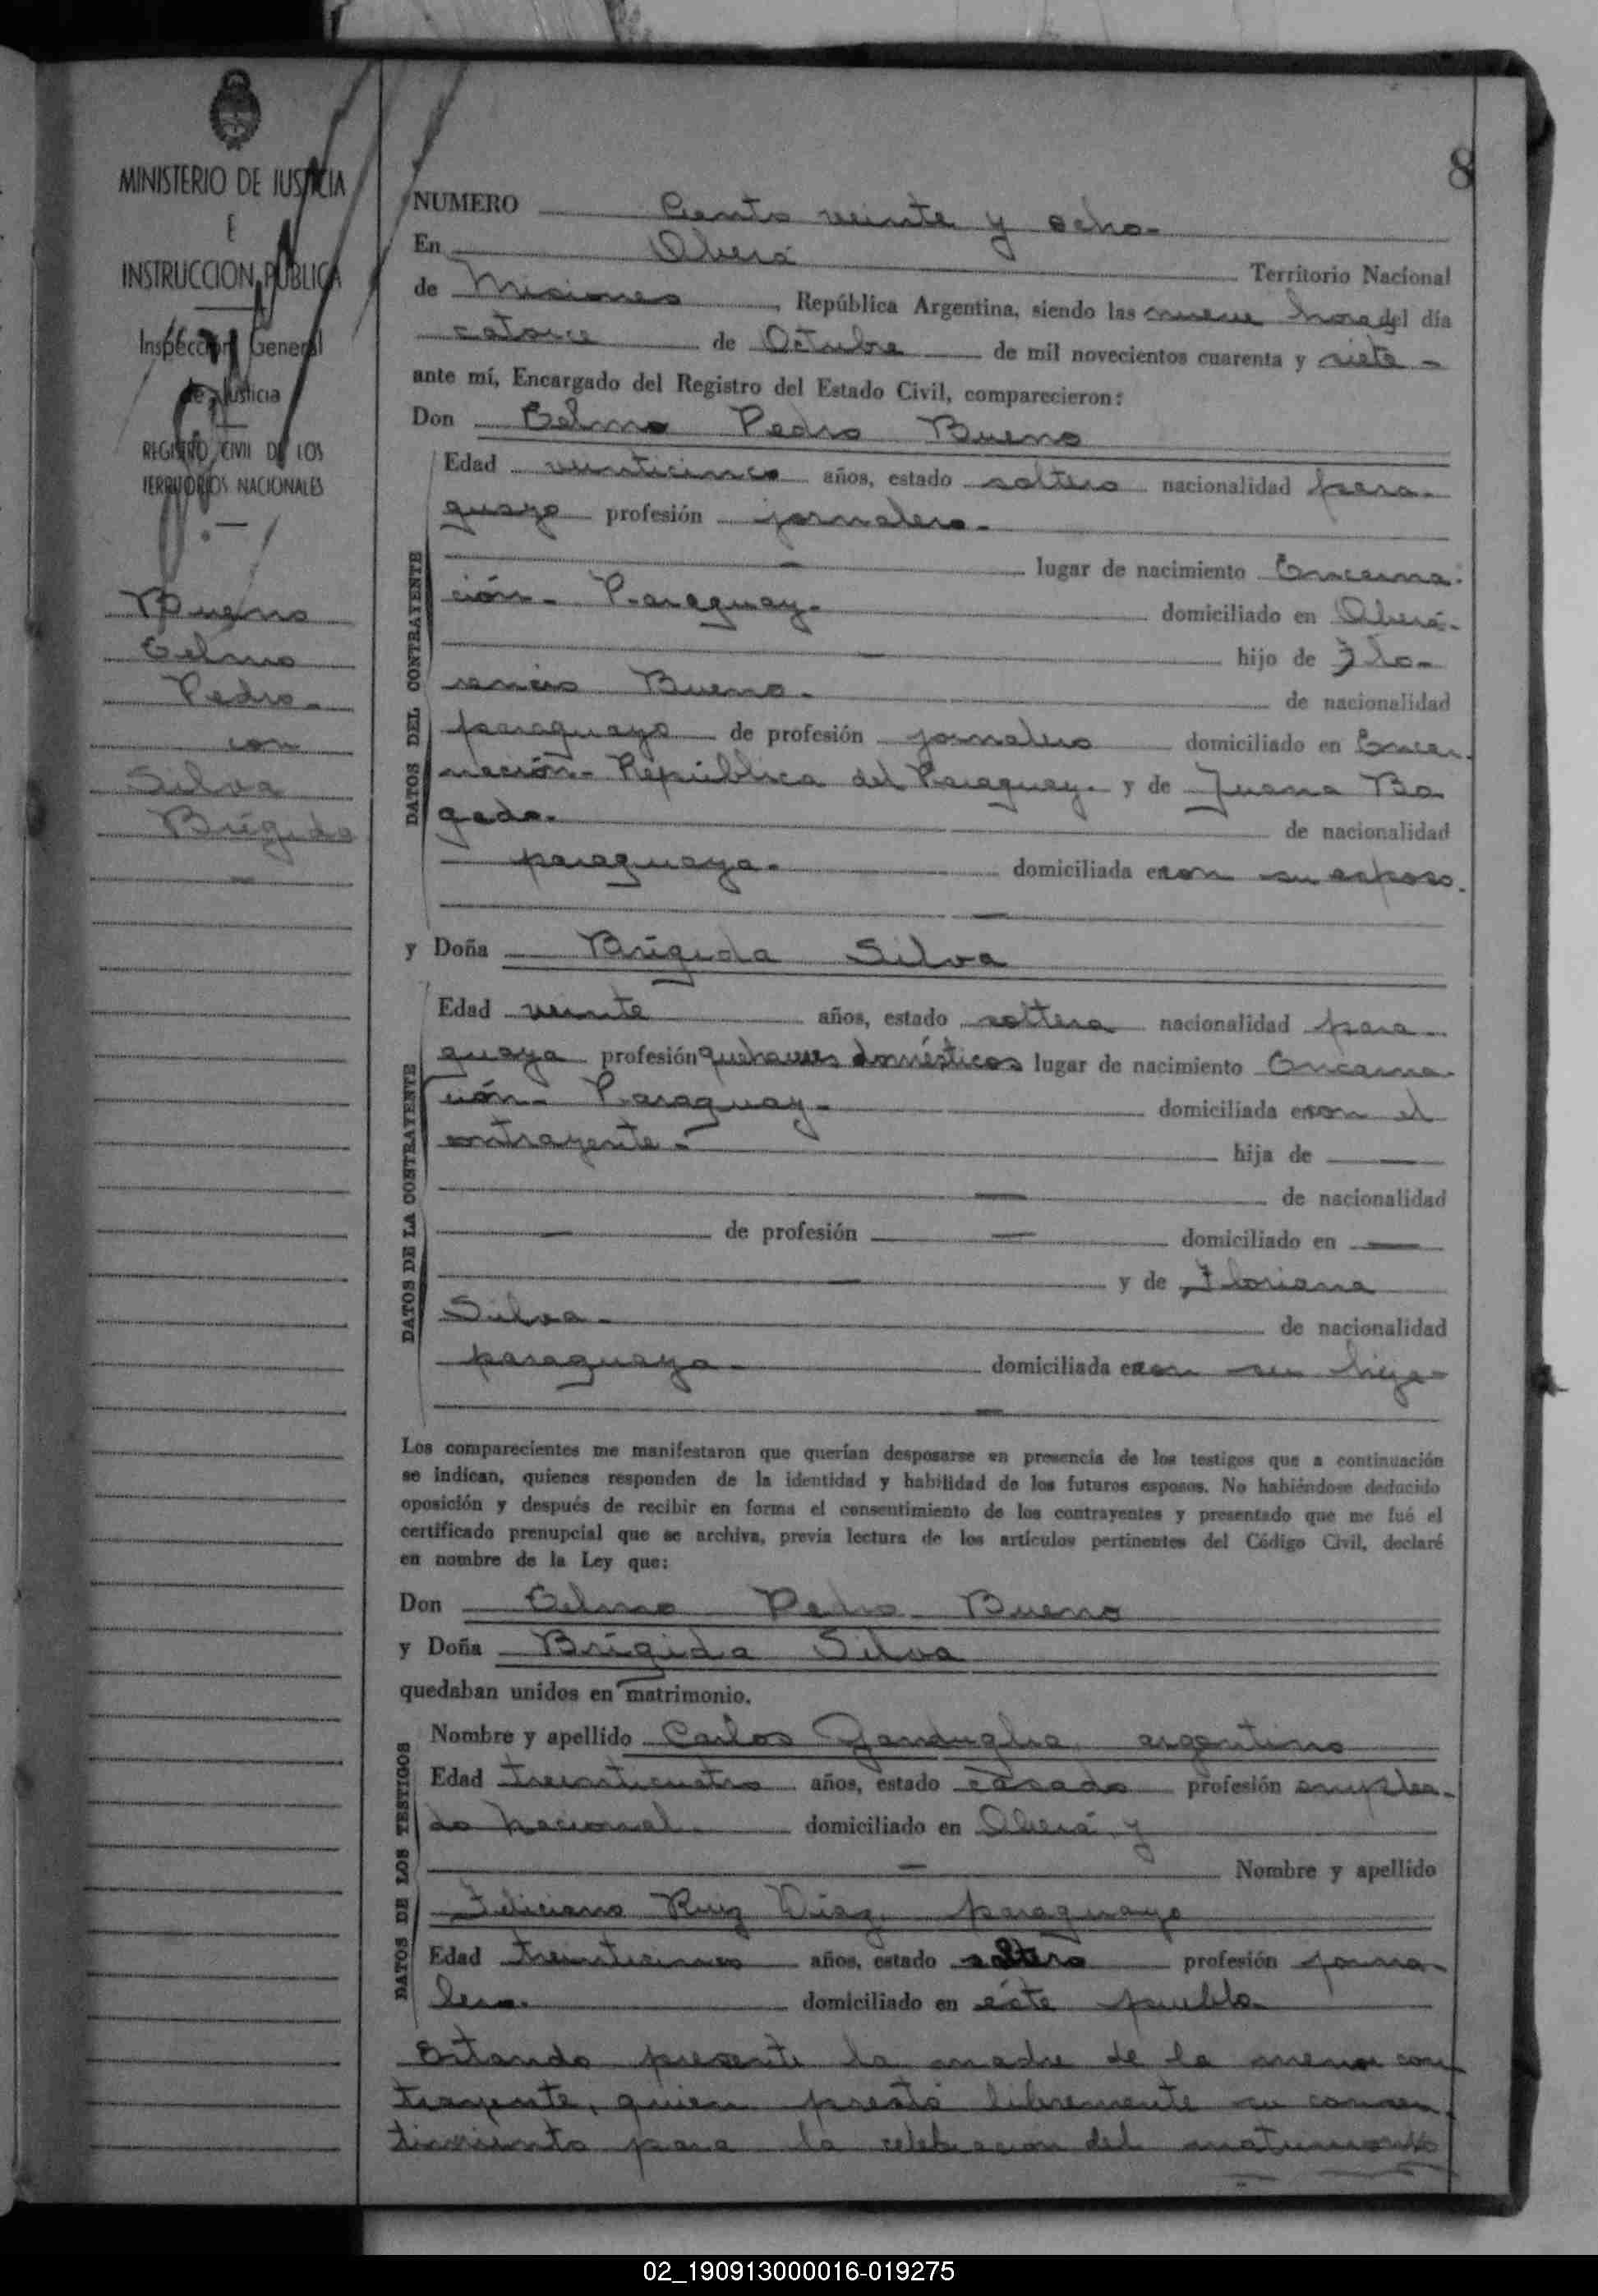 8
MINISTERIO DE JUSTICIA
E
INSTRUCCION PUBLICA
Inspección General
de Justicia
REGISTRO CIVIL DE LOS
TERRITORIOS NACIONALES
Bueno
Celmo
Pedro.
con
Silva
Brígida
NUMERO Ciento veinte y ocho-
En Oberá Territorio Nacional
de Misiones, República Argentina, siendo las nueve horas del día
catorce de Octubre de mil novecientos cuarenta y siete -
ante mí, Encargado del Registro del Estado Civil, comparecieron:
Don Celmo Pedro Bueno
DATOS DEL CONTRAYENTE
Edad veinticinco años, estado soltero nacionalidad para-
guayo profesión jornalero.
lugar de nacimiento Encarna-
ción- Paraguay- domiciliado en Oberá-
hijo de Flo-
rencio Bueno. de nacionalidad
paraguayo de profesión jornalero domiciliado en Encar-
nación- República del Paraguay. y de Juana Bo
gado. de nacionalidad
paraguaya. domiciliada en con su esposo.
y Doña Brígida Silva
DATOS DE LA CONTRAYENTE
Edad veinte años, estado soltera nacionalidad para-
guaya profesión quehaceres domésticos lugar de nacimiento Encarna-
ción- Paraguay- domiciliada en con el
contrayente - hija de
de nacionalidad
de profesión domiciliado en
y de Floriana
Silva. de nacionalidad
paraguaya domiciliada en con su hija-
Los comparecientes me manifestaron que querían desposarse en presencia de los testigos que a continuación
se indican, quienes responden de la identidad y habilidad de los futuros esposos. No habiéndose deducido
oposición y después de recibir en forma el consentimiento de los contrayentes y presentado que me fué el
certificado prenupcial que se archiva, previa lectura de los artículos pertinentes del Código Civil, declaré
en nombre de la Ley que:
Don Celmo Pedro Bueno
y Doña Brígida Silva
quedaban unidos en matrimonio.
DATOS DE LOS TESTIGOS
Nombre y apellido Carlos Ganduglia argentino
Edad treinticuatro años, estado casado profesión emplea-
do Nacional. domiciliado en Oberá y
Nombre y apellido
Feliciano Ruiz Diaz. paraguayo
Edad treinticinco años, estado soltero profesión jorna-
lero. domiciliado en éste pueblo
Estando presente la madre de la menor con
trayente, quien prestó libremente su consen
timiento para la celebracion del matrimonio
02_190913000016-019275